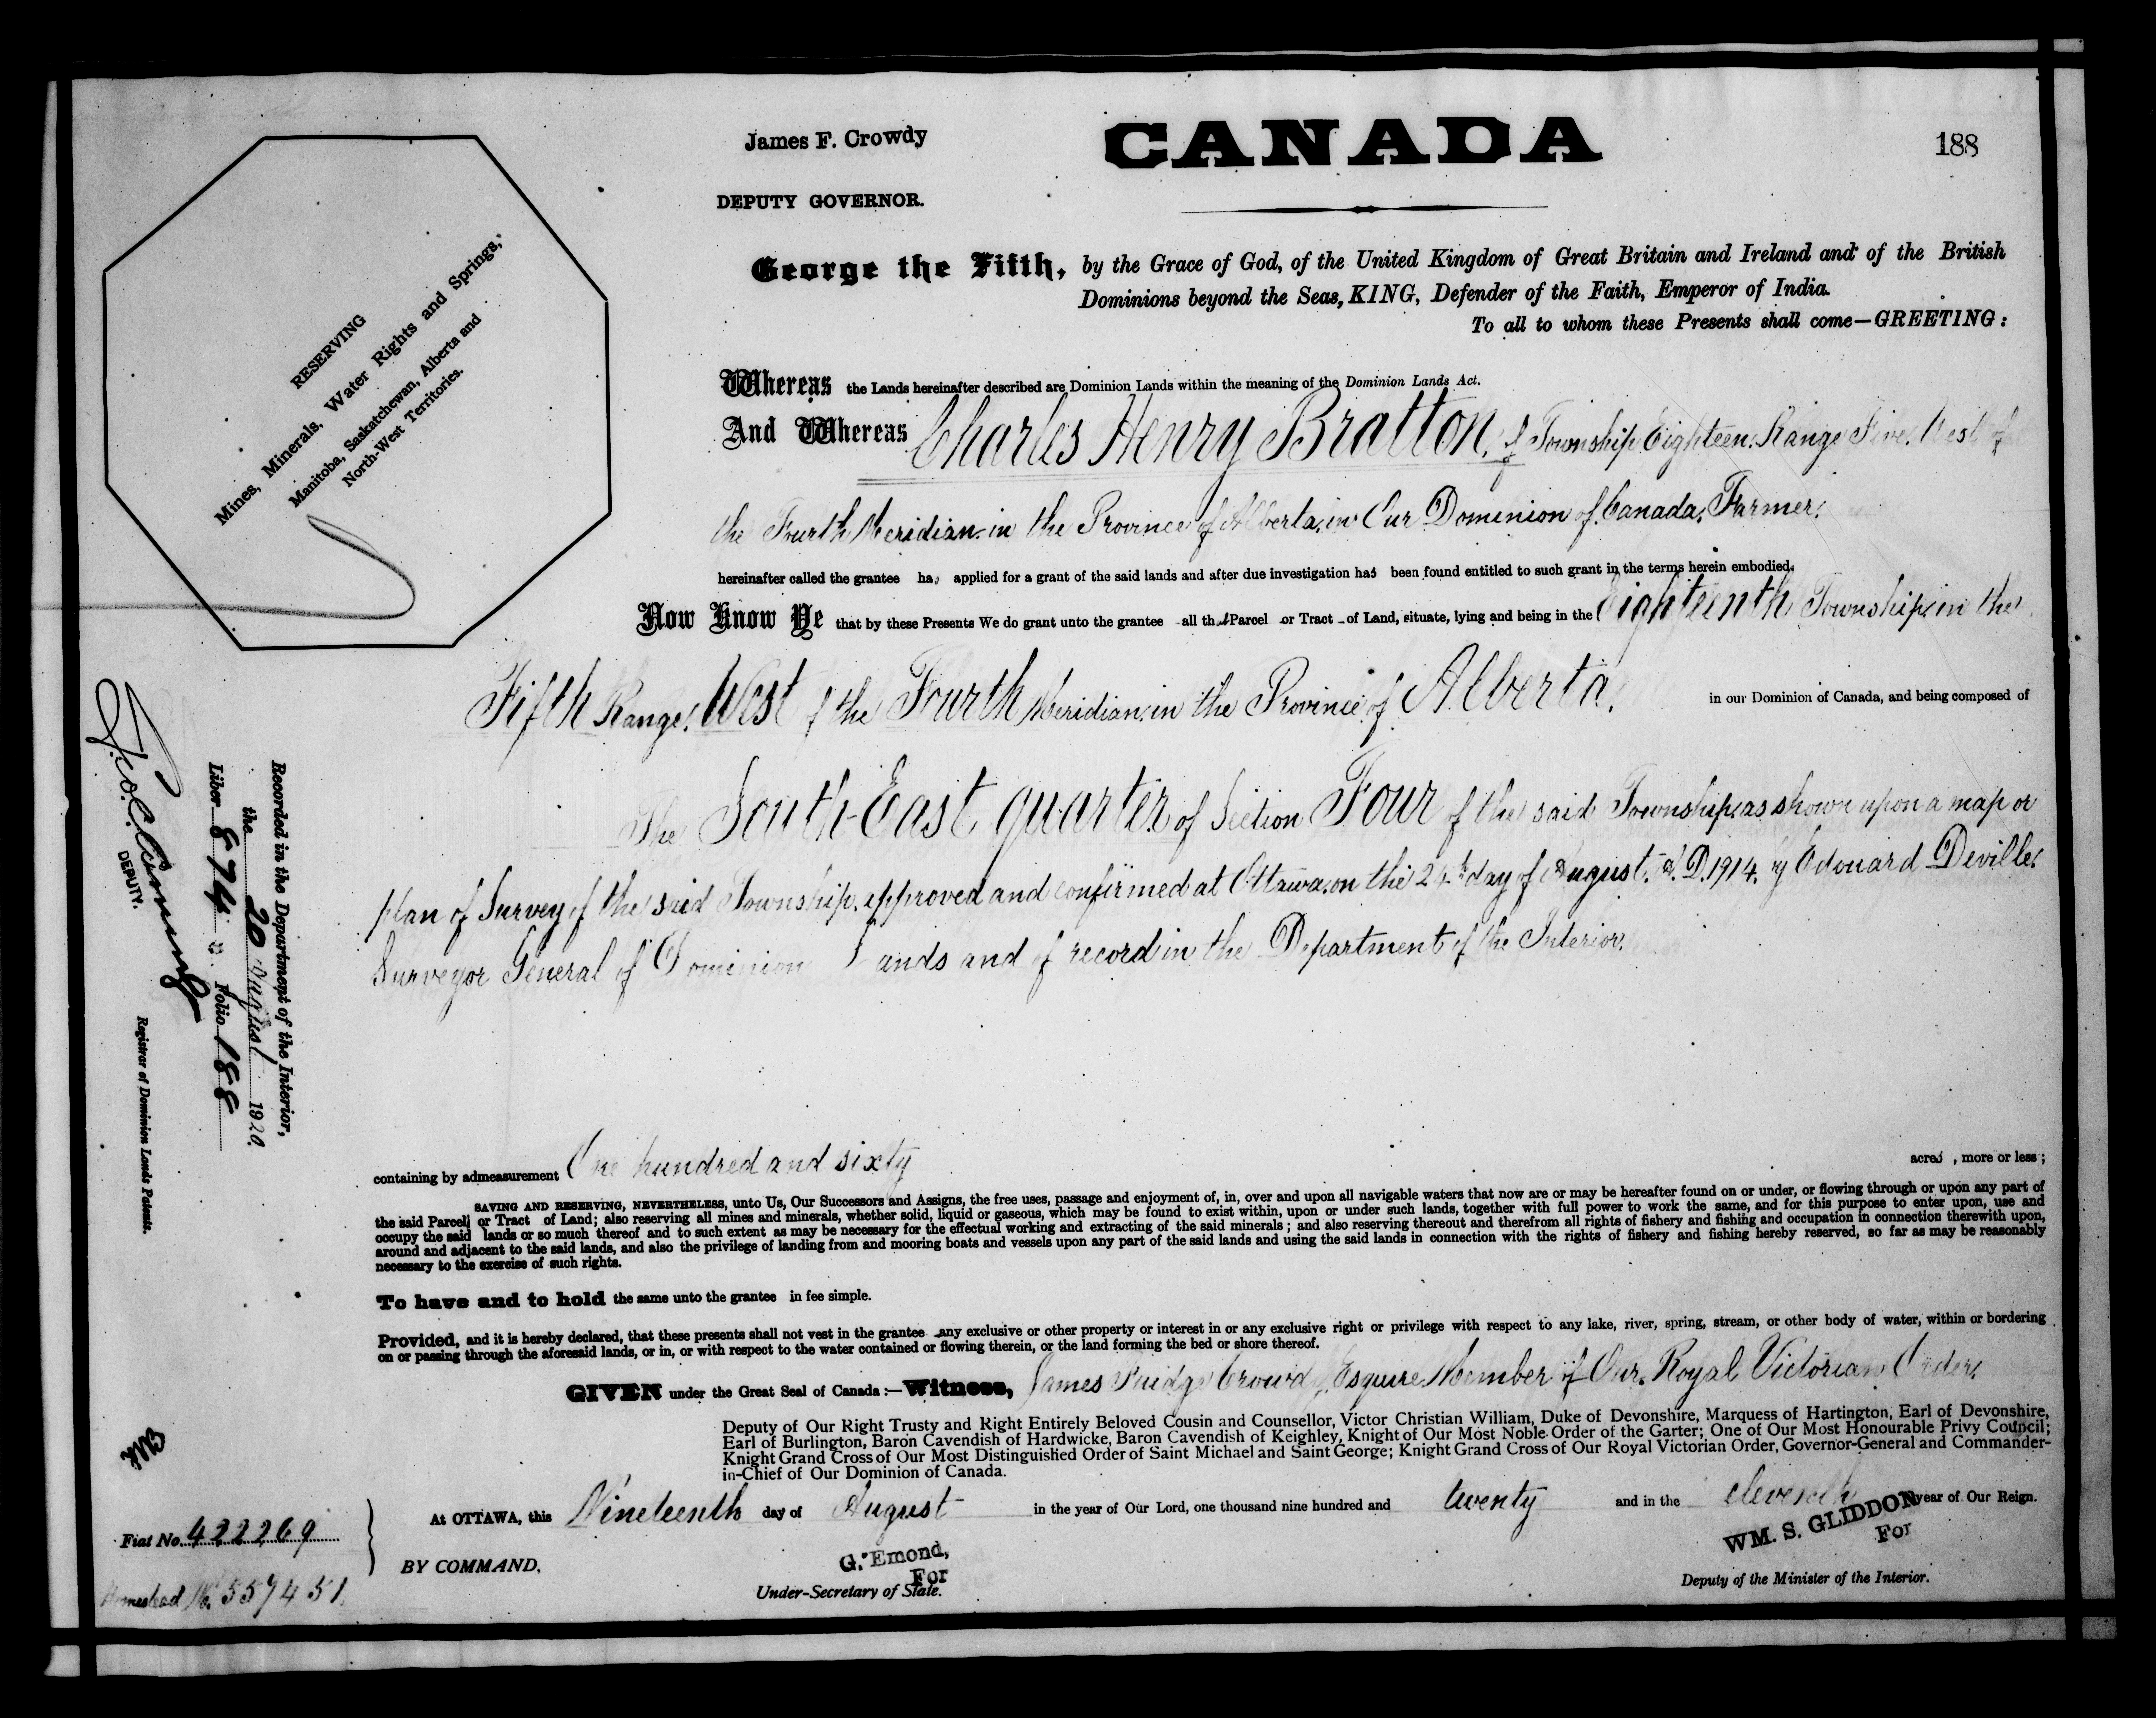 James F. Crowdy
CANADA
188
DEPUTY GOVERNOR.
RESERVING
Mines, Minerals, Water Rights and Springs,
Manitoba, Saskatchewan, Alberta and
North-West Territories.
George the Fifth, by the Grace of God, of the United Kingdom of Great Britain and Ireland and of the British
Dominions beyond the Seas, KING, Defender of the Faith, Emperor of India.
To all to whom these Presents shall come—GREETING:
Whereas the Lands hereinafter described are Dominion Lands within the meaning of the Dominion Lands Act.
And Whereas Charles Henry Bratton, of Township Eighteen, Range Five, West of
the Fourth Meridian, in the Province of Alberta, in Our Dominion of Canada, Farmer,
hereinafter called the grantee has applied for a grant of the said lands and after due investigation has been found entitled to such grant in the terms herein embodied.
Now Know Ye that by these Presents We do grant unto the grantee all that Parcel or Tract of Land, situate, lying and being in the Eighteenth Township, in the
Fifth Range, West of the Fourth Meridian, in the Province of Alberta, in our Dominion of Canada, and being composed of
The South-East quarter of Section Four of the said Township, as shown upon a map or
plan of Survey of the said Township, approved and confirmed at Ottawa, on the 24th day of August, A.D. 1914, by Edouard Deville,
Surveyor General of Dominion Lands and of record in the Department of the Interior,
containing by admeasurement One hundred and sixty acres, more or less;
SAVING AND RESERVING, NEVERTHELESS, unto Us, Our Successors and Assigns, the free uses, passage and enjoyment of, in, over and upon all navigable waters that now are or may be hereafter found on or under, or flowing through or upon any part of
the said Parcel or Tract of Land; also reserving all mines and minerals, whether solid, liquid or gaseous, which may be found to exist within, upon or under such lands, together with full power to work the same, and for this purpose to enter upon, use and
occupy the said lands or so much thereof and to such extent as may be necessary for the effectual working and extracting of the said minerals; and also reserving thereout and therefrom all rights of fishery and fishing and occupation in connection therewith upon,
around and adjacent to the said lands, and also the privilege of landing from and mooring boats and vessels upon any part of the said lands and using the said lands in connection with the rights of fishery and fishing hereby reserved, so far as may be reasonably
necessary to the exercise of such rights.
To have and to hold the same unto the grantee in fee simple.
Provided, and it is hereby declared, that these presents shall not vest in the grantee any exclusive or other property or interest in or any exclusive right or privilege with respect to any lake, river, spring, stream, or other body of water, within or bordering
on or passing through the aforesaid lands, or in, or with respect to the water contained or flowing therein, or the land forming the bed or shore thereof.
GIVEN under the Great Seal of Canada:—Witness, James Crowdy, Esquire, Member of Our Royal Victorian Order,
Deputy of Our Right Trusty and Right Entirely Beloved Cousin and Counsellor, Victor Christian William, Duke of Devonshire, Marquess of Hartington, Earl of Devonshire,
Earl of Burlington, Baron Cavendish of Hardwicke, Baron Cavendish of Keighley, Knight of Our Most Noble Order of the Garter; One of Our Most Honourable Privy Council;
Knight Grand Cross of Our Most Distinguished Order of Saint Michael and Saint George; Knight Grand Cross of Our Royal Victorian Order, Governor-General and Commander-
in-Chief of Our Dominion of Canada.
At OTTAWA, this Nineteenth day of August in the year of Our Lord, one thousand nine hundred and twenty and in the eleventh year of Our Reign.
BY COMMAND,
G. Emond,
For
Under-Secretary of State.
WM. S. GLIDDON
For
Deputy of the Minister of the Interior.
Recorded in the Department of the Interior,
the 20 August 1920.
Liber 874 Folio 188
DEPUTY.
Registrar of Dominion Lands Patents.
Fiat No. 422269
Homestead No. 557451.